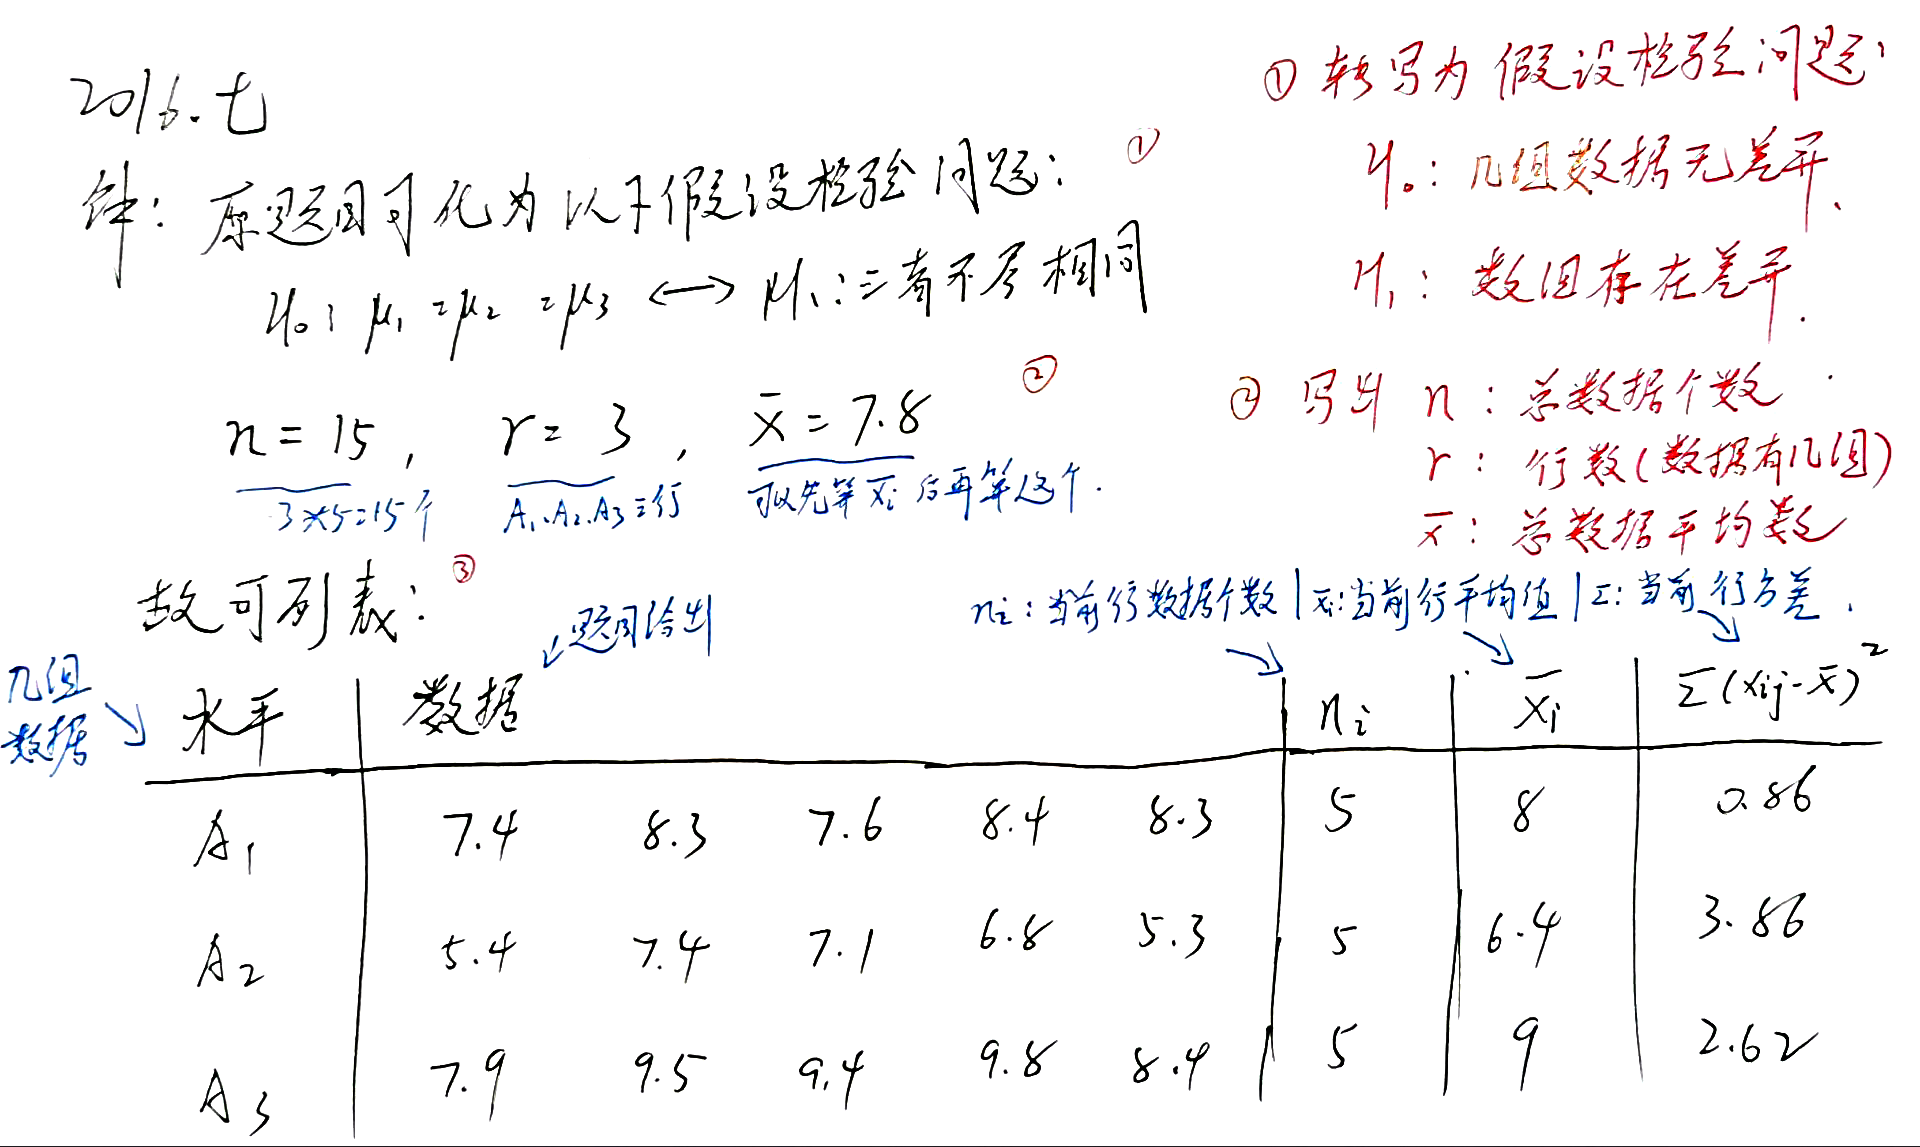 2016.七
解：原题目可化为以下假设检验问题： ①
H₀：μ₁=μ₂=μ₃ ⟷ H₁：三者不尽相同
n=15， r=3， x̄=7.8 ②
3×5=15个 A₁.A₂.A₃三行 可以先算x̄ᵢ后再算这个.
故可列表： ③
① 转写为假设检验问题：
H₀：几组数据无差异.
H₁：数组存在差异.
② 写出 n：总数据个数
r：行数(数据有几组)
x̄：总数据平均数
题目给出
nᵢ：当前行数据个数|x̄ᵢ:当前行平均值|Σ:当前行方差.
几组
数据
水平 数据 nᵢ x̄ᵢ Σ(xᵢⱼ-x̄)²
A₁ 7.4 8.3 7.6 8.4 8.3 5 8 0.86
A₂ 5.4 7.4 7.1 6.8 5.3 5 6.4 3.86
A₃ 7.9 9.5 9.4 9.8 8.4 5 9 2.62